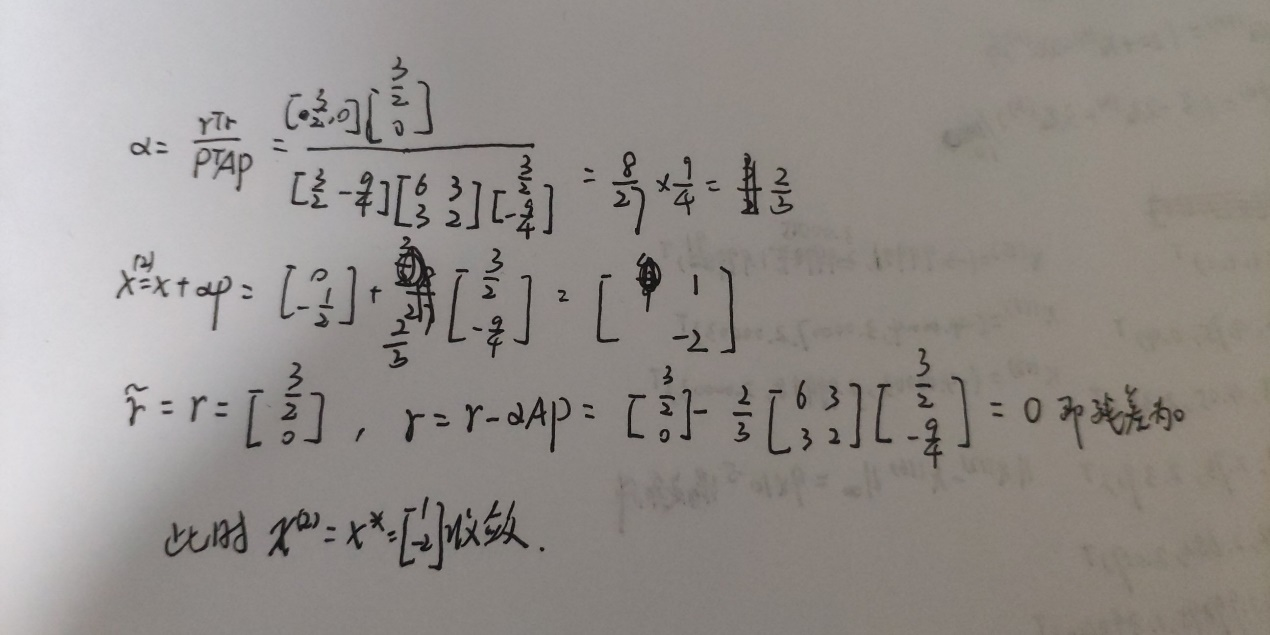 α = rTr / PTAP = [3/2, 0] [3/2 0] / [3/2 -9/4] [6 3 3 2] [3/2 -9/4] = 8/27 × 9/4 = 2/3
x(2) = x + αp = [0 -1/2] + 2/3 [3/2 -9/4] = [1 -2]
r̃ = r = [3/2 0], r = r - αAp = [3/2 0] - 2/3 [6 3 3 2] [3/2 -9/4] = 0 即残差为0
此时 x(2) = x* = [1 -2] 收敛.